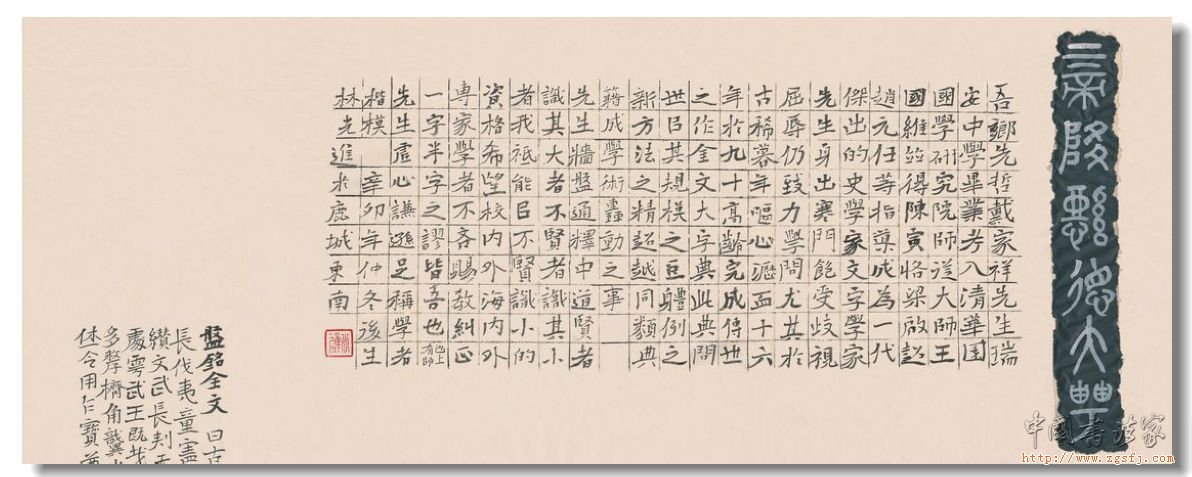 帝降懿德大豐
吾鄉先哲戴家祥先生瑞
安中學畢業考入清華国
國學研究院師從大師王
國維並得陳寅恪梁啟超
趙元任等指導成為一代
傑出的史學家文字學家
先生身出寒門飽受歧視
屈辱仍致力學問尤其於
古稀暮年嘔心瀝血十六
年於九十高齡完成傳世
之作金文大字典此典問
世㠯其規模之巨體例之
新方法之精超越同類典
籍成學術轟動之事
先生牆盤通釋中道賢者
識其大者不賢者識其小
者我祇能㠯不賢識小的
資格希望校內外海內外
專家學者不吝賜教糾正
一字半字之謬皆吾也 也上有師
先生虛心謙遜足稱學者
楷模 辛卯年仲冬後生
林光進於鹿城東南
盤銘全文 曰古
長伐夷童
纘文武長剌
處雩武王既
多孷櫅角龏
休令用乍寶尊
中国书法家
http://www.zgsfj.com